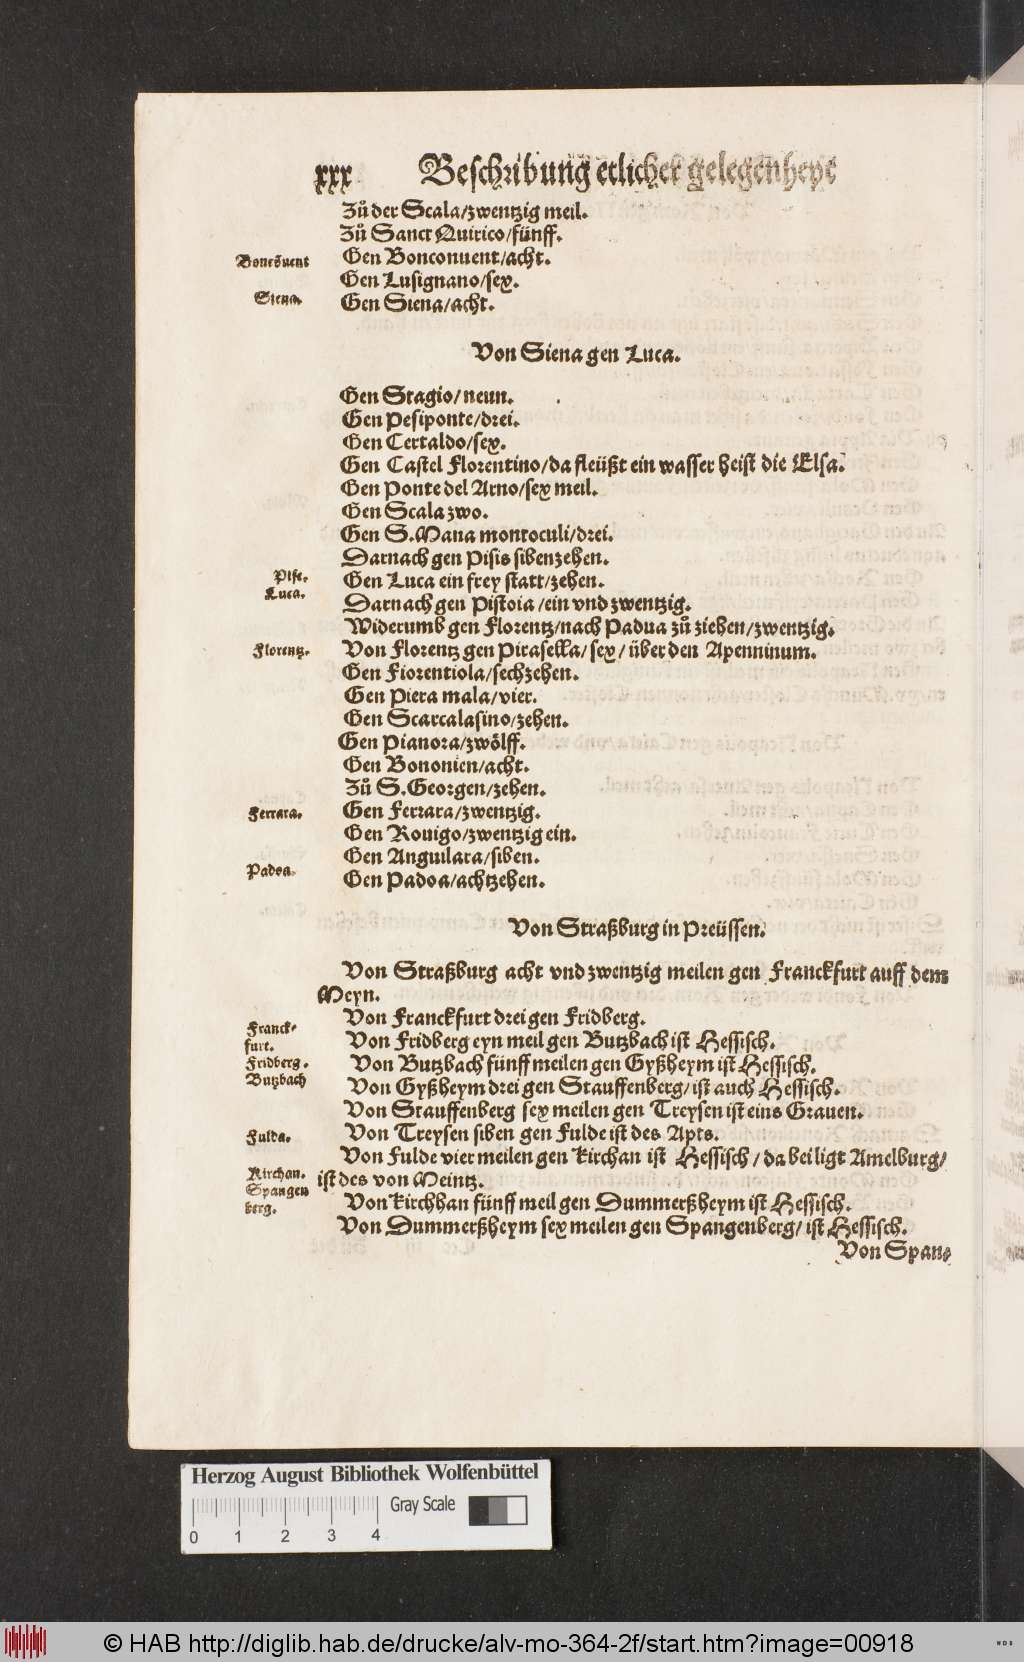 xxx Beschribung etlicher gelegenheyt
Zů der Scala/zwentzig meil.
Zů Sanct Quirico/fünff.
Boncõuent Gen Bonconuent/acht.
Gen Lusignano/sex.
Siena. Gen Siena/acht.
Von Siena gen Luca.
Gen Stagio/neun.
Gen Pesiponte/drei.
Gen Certaldo/sex.
Gen Castel Florentino/da fleüßt ein wasser heißt die Elsa.
Gen Ponte del Arno/sex meil.
Gen Scala zwo.
Gen S.Maria montoculi/drei.
Darnach gen Pisis sibenzehen.
Pise. Gen Luca ein frey statt/zehen.
Luca. Darnach gen Pistoia/ein vnd zwentzig.
Widerumb gen Florentz/nach Padua zů ziehen/zwentzig.
Florentz. Von Florentz gen Pirasella/sex/über den Apenninum.
Gen Fiorentiola/sechzehen.
Gen Piera mala/vier.
Gen Scarcalasino/zehen.
Gen Pianora/zwölff.
Gen Bononien/acht.
Zů S.Georgen/zehen.
Ferrara. Gen Ferrara/zwentzig.
Gen Rouigo/zwentzig ein.
Gen Anguilara/siben.
Padoa. Gen Padoa/achtzehen.
Von Straßburg in Preüssen.
Von Straßburg acht vnd zwentzig meilen gen Franckfurt auff dem
Meyn.
Von Franckfurt drei gen Fridberg.
Franck-
furt. Von Fridberg eyn meil gen Butzbach ist Hessisch.
Fridberg. Von Butzbach fünff meilen gen Gyßheym ist Hessisch.
Butzbach Von Gyßheym drei gen Stauffenberg/ist auch Hessisch.
Von Stauffenberg sex meilen gen Treysen ist eins Grauen.
Fulda. Von Treysen siben gen Fulde ist des Apts.
Von Fulde vier meilen gen Kirchan ist Hessisch/da bei ligt Amelburg/
Kirchan. ist des von Meintz.
Spangen
berg. Von Kirchhan fünff meil gen Dummerßheym ist Hessisch.
Von Dummerßheym sex meilen gen Spangenberg/ist Hessisch.
Von Span-
Herzog August Bibliothek Wolfenbüttel
Gray Scale
0 1 2 3 4
© HAB http://diglib.hab.de/drucke/alv-mo-364-2f/start.htm?image=00918